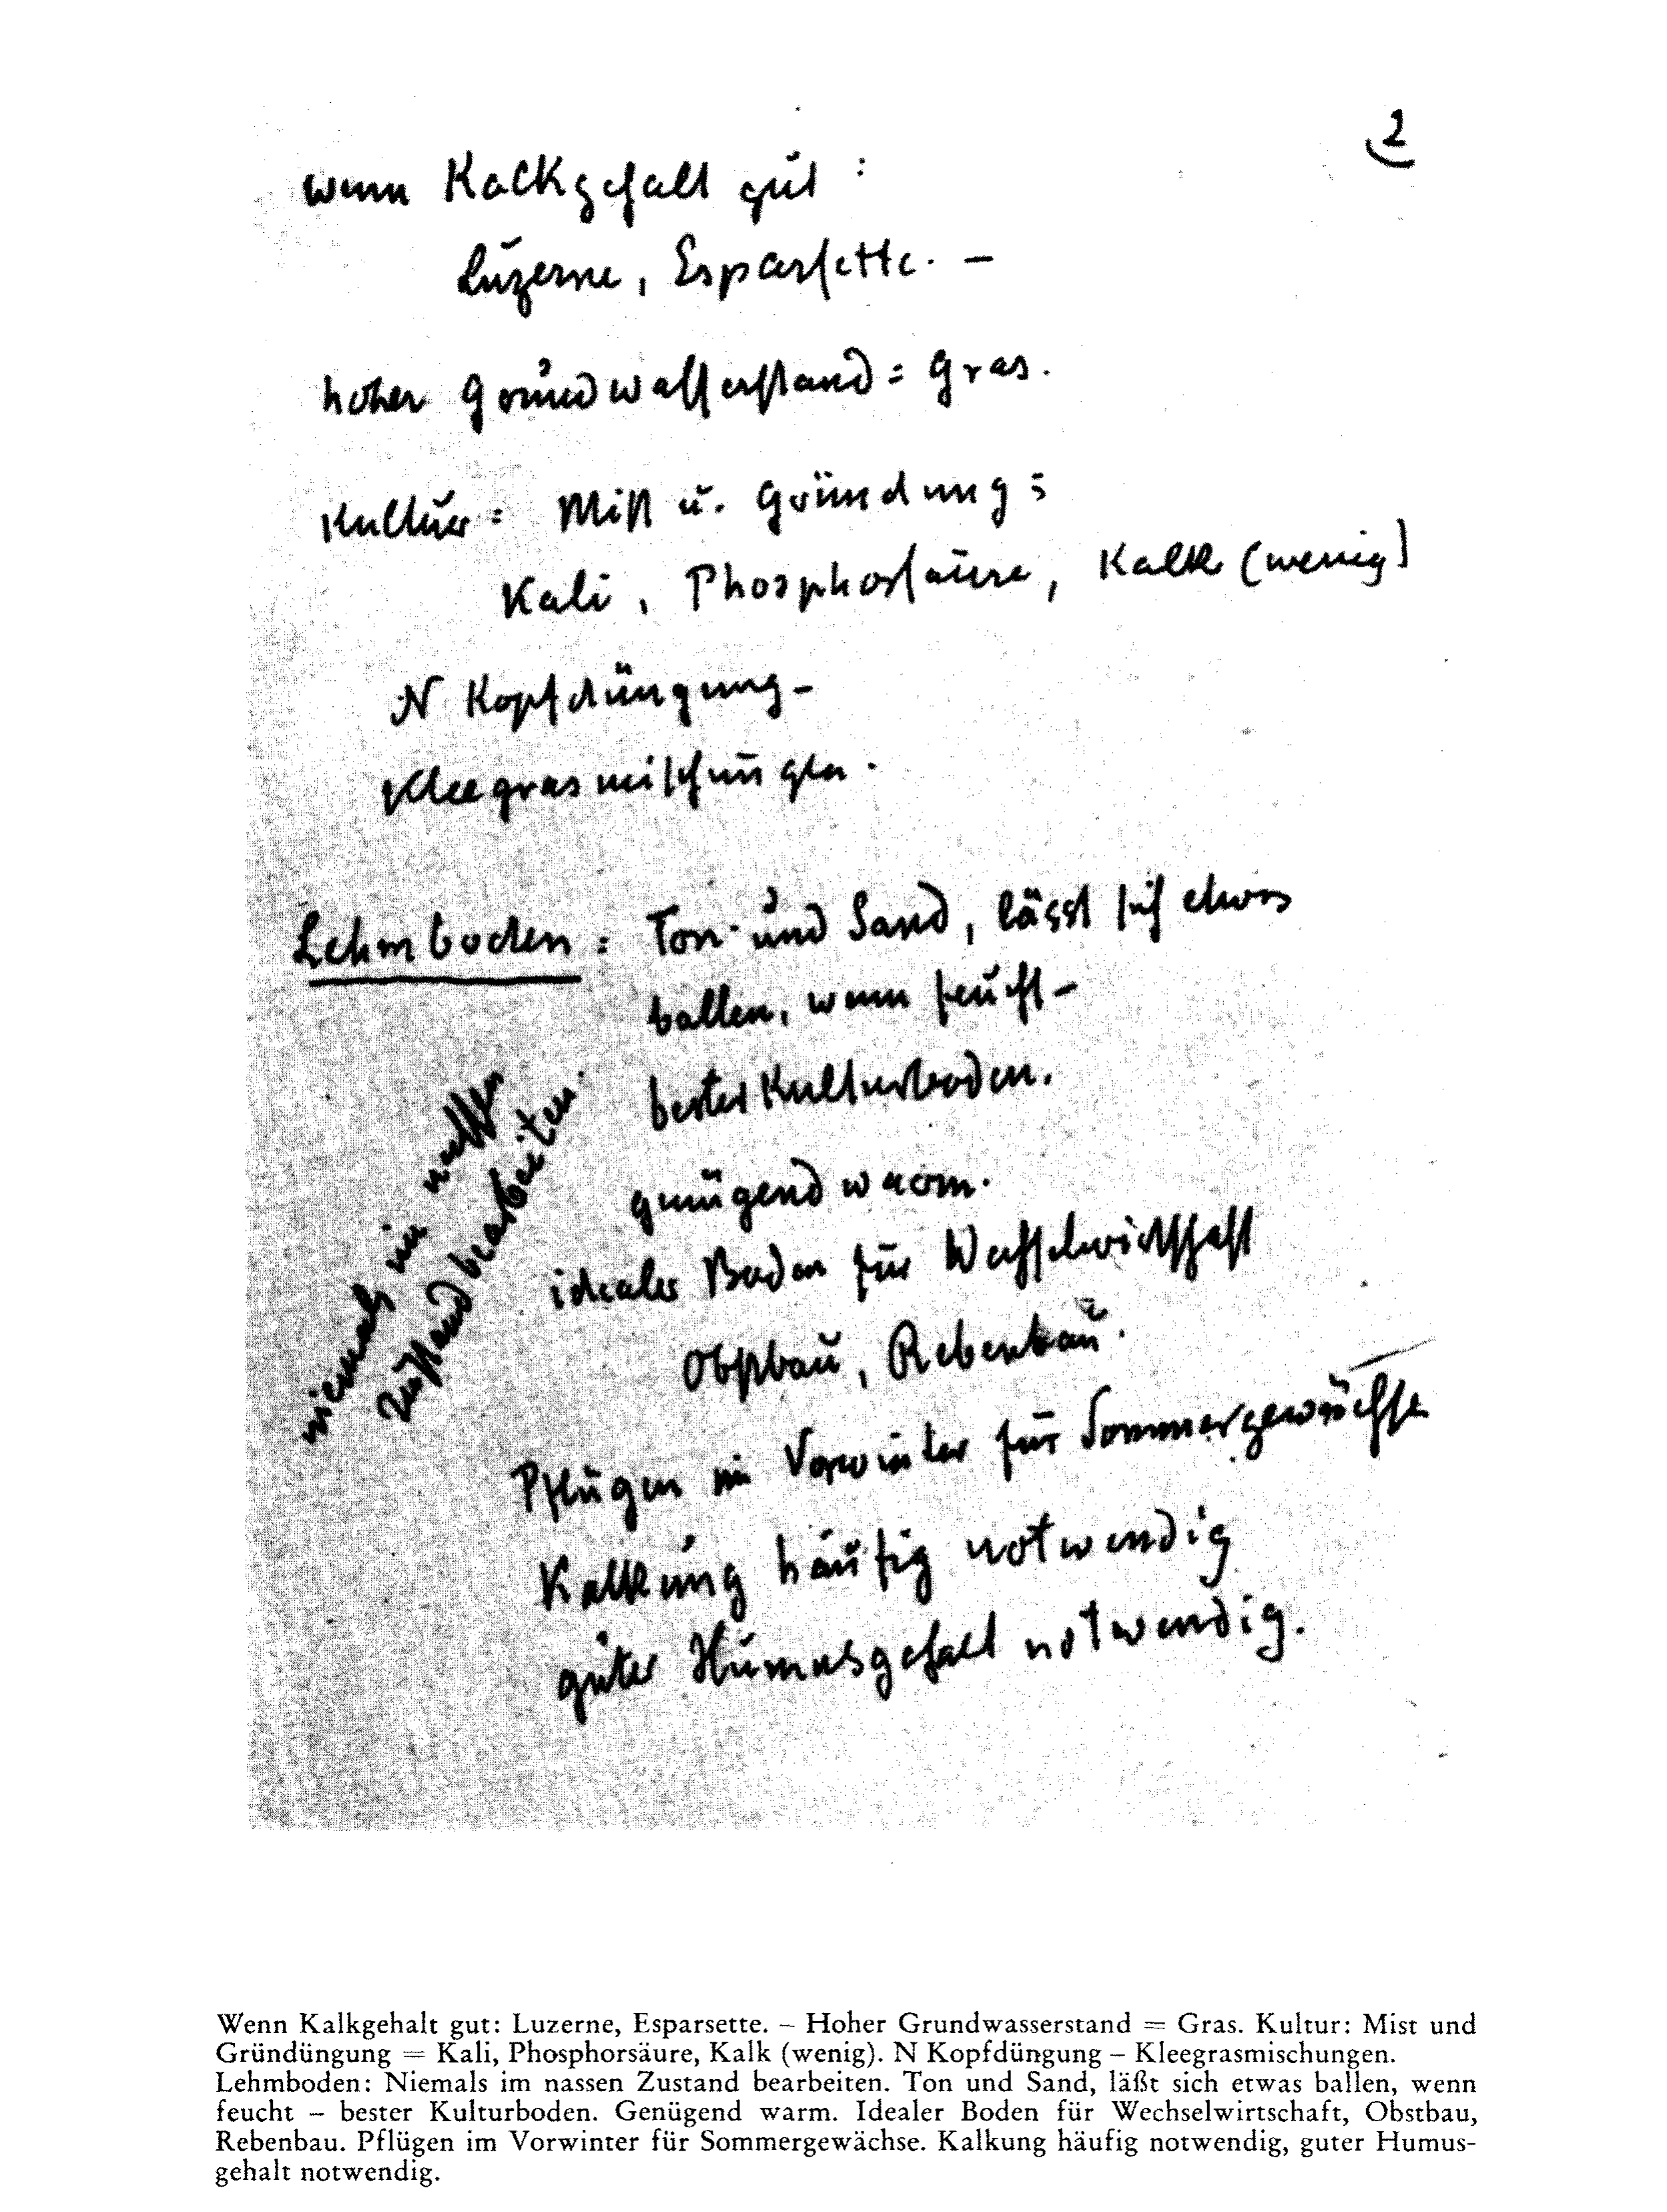 2
wenn Kalkgehalt gut :
Luzerne, Esparsette. –
hoher Grundwasserstand = Gras.
Kultur = Mist u. Gründung =
Kali, Phosphorsäure, Kalk (wenig)
N Kopfdüngung –
Kleegrasmischungen.
Lehmboden : Ton und Sand, lässt sich etwas
ballen, wenn feucht –
bester Kulturboden.
genügend warm.
niemals im nassen
Zustand bearbeiten.
idealer Boden für Wechselwirtschaft
Obstbau, Rebenbau.
Pflügen im Vorwinter für Sommergewächse
Kalkung häufig notwendig
guter Humusgehalt notwendig.
Wenn Kalkgehalt gut: Luzerne, Esparsette. – Hoher Grundwasserstand = Gras. Kultur: Mist und
Gründüngung = Kali, Phosphorsäure, Kalk (wenig). N Kopfdüngung – Kleegrasmischungen.
Lehmboden: Niemals im nassen Zustand bearbeiten. Ton und Sand, läßt sich etwas ballen, wenn
feucht – bester Kulturboden. Genügend warm. Idealer Boden für Wechselwirtschaft, Obstbau,
Rebenbau. Pflügen im Vorwinter für Sommergewächse. Kalkung häufig notwendig, guter Humus-
gehalt notwendig.